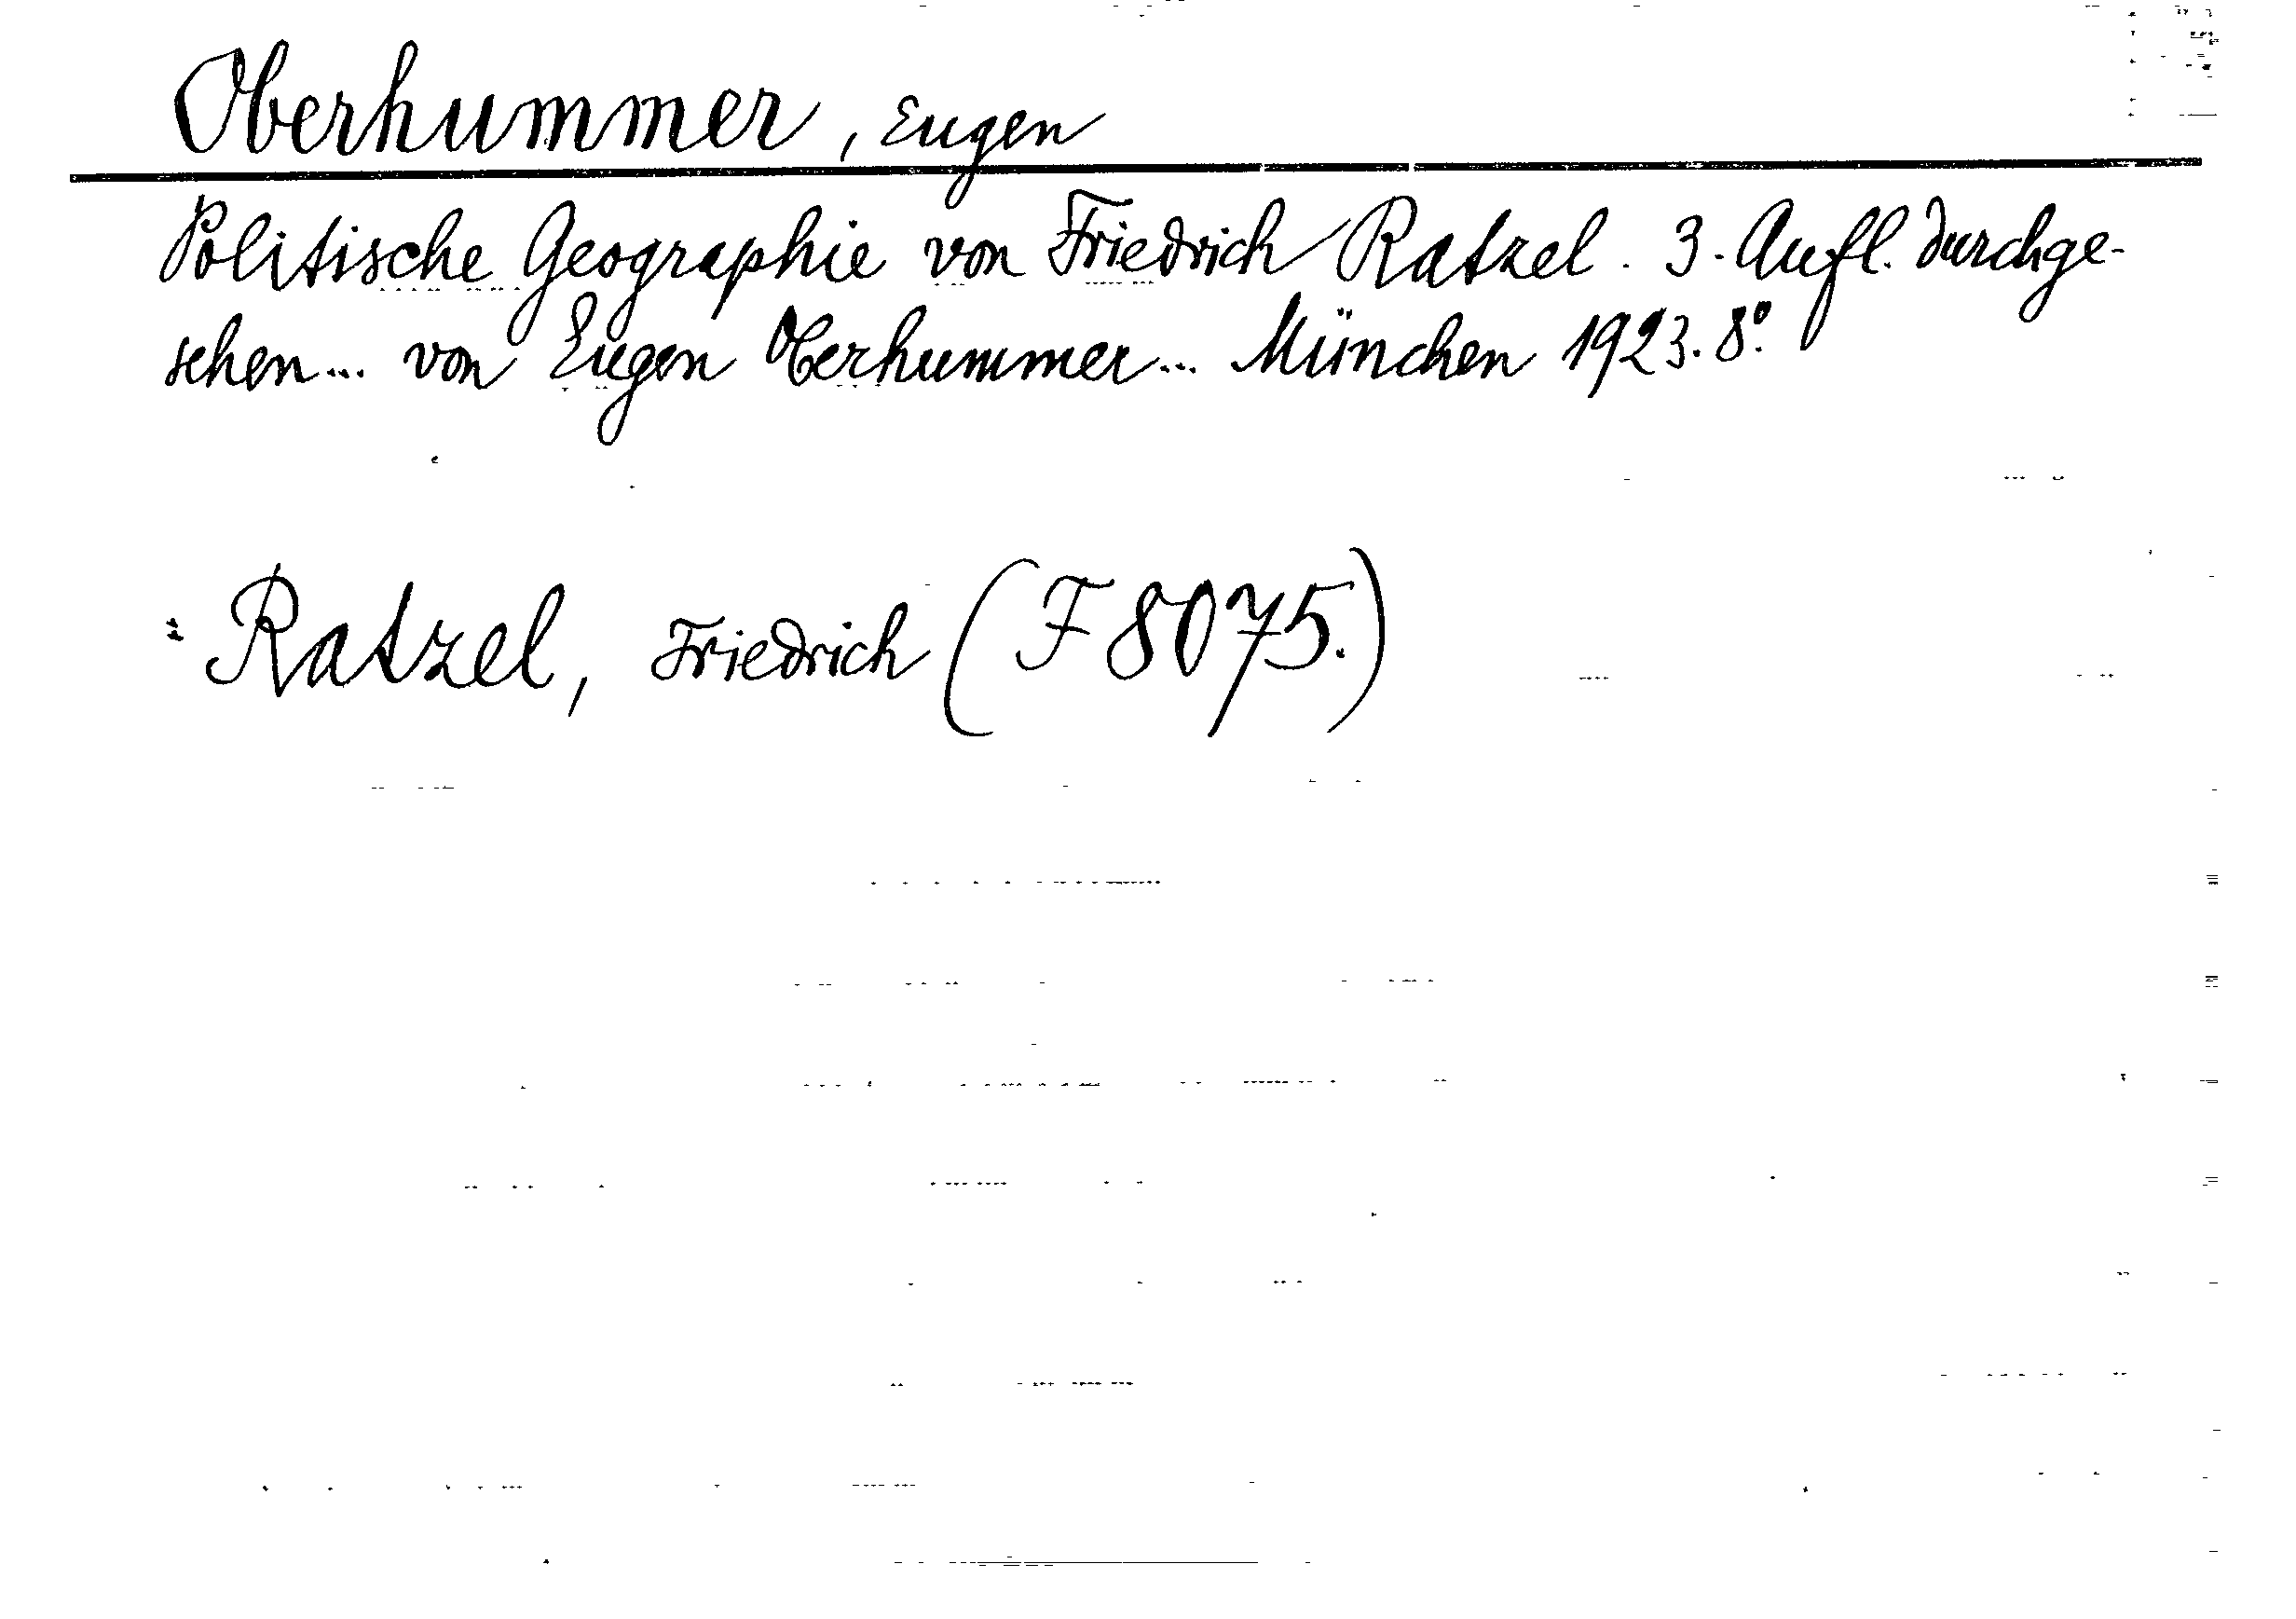 Oberhummer, Eugen
Politische Geographie von Friedrich Ratzel. 3. Aufl. durchge-
sehen... von Eugen Oberhummer... München 1923. 8°.
: Ratzel, Friedrich (F 8075.)